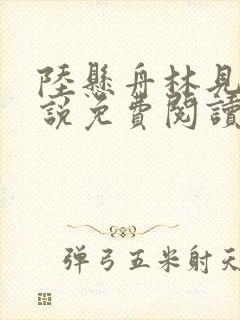 陸懸舟林見
說免費閱讀
彈弓五米射天